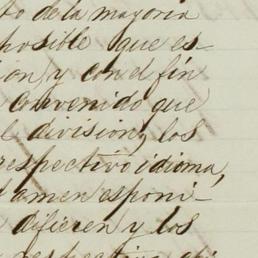 to de la mayoria
posible que es-
ion, y con el fin
convenido que
l division, los
respectivo idioma,
amen esponi-
difieren y los
respectivo